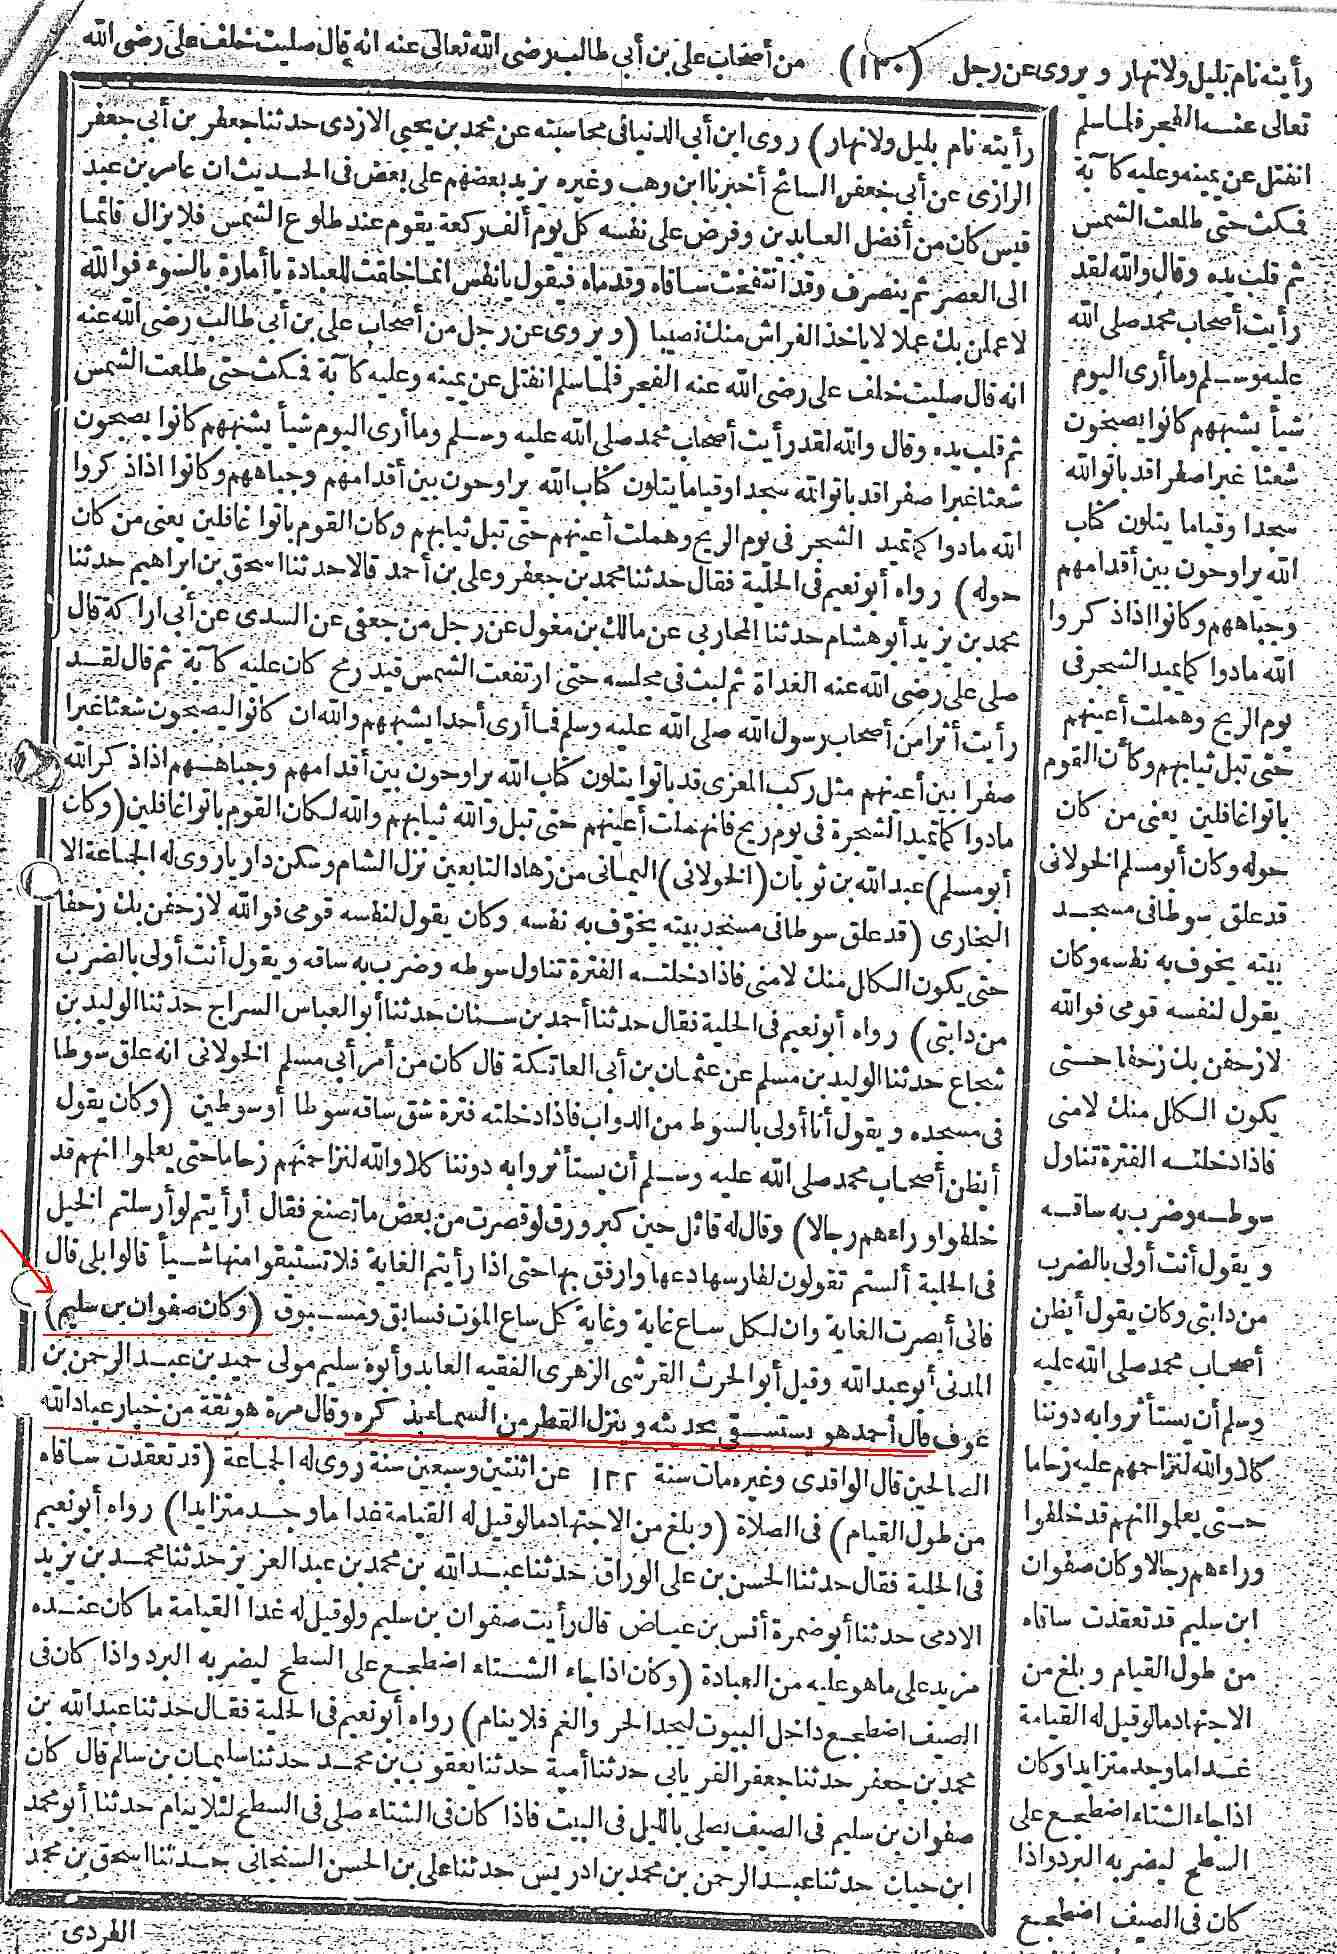 رأيته نام بليل ولا نهار ويروى عن رجل (١٣٠) من أصحاب على بن أبى طالب رضى الله تعالى عنه انه قال صليت خلف على رضى الله
تعالى عنه الفجر فلما سلم
انفتل عن يمينه وعليه كآبة
فمكث حتى طلعت الشمس
ثم قلب يده وقال والله لقد
رأيت أصحاب محمد صلى الله
عليه وسلم وما أرى اليوم
شيأ يشبههم كانوا يصبحون
شعثا غبرا صفرا قد باتوا لله
سجدا وقياما يتلون كتاب
الله يراوحون بين أقدامهم
وجباههم وكانوا اذا ذكروا
الله مادوا كما يميد الشجر فى
يوم الريح وهملت أعينهم
حتى تبل ثيابهم وكأن القوم
باتوا غافلين يعنى من كان
حوله وكان أبو مسلم الخولانى
قد علق سوطا فى مسجد
بيته يخوف به نفسه وكان
يقول لنفسه قومى فوالله
لازحفن بك زحفا حتى
يكون الكلل منك لا منى
فاذا دخلته الفترة تناول
سوطه وضرب به ساقه
ويقول أنت أولى بالضرب
من دابتى وكان يقول أيظن
أصحاب محمد صلى الله عليه
وسلم أن يستأثروا به دوننا
كلا والله لنزاحمهم عليه زحاما
حتى يعلموا انهم قد خلفوا
وراءهم رجالا وكان صفوان
ابن سليم قد تعقدت ساقاه
من طول القيام وبلغ من
الاجتهاد مالو قيل له القيامة
غدا ما وجد متزايدا وكان
اذا جاء الشتاء اضطجع على
السطح ليضربه البرد واذا
كان فى الصيف اضطجع
رأيته نام بليل ولا نهار) روى ابن أبى الدنيا فى محاسبته عن محمد بن يحيى الازدى حدثنا جعفر بن أبى جعفر
الرازى عن أبى جعفر السائح أخبرنا ابن وهب وغيره يزيد بعضهم على بعض فى الحديث ان عامر بن عبد
قيس كان من أفضل العابدين وفرض على نفسه كل يوم ألف ركعة يقوم عند طلوع الشمس فلا يزال قائما
الى العصر ثم ينصرف وقد انتفخت ساقاه وقدماه فيقول يا نفس انما خلقت للعبادة يا أمارة بالسوء فوالله
لاعملن بك عملا لا يأخذ الفراش منك نصيبا (ويروى عن رجل من أصحاب على بن أبى طالب رضى الله عنه
انه قال صليت خلف على رضى الله عنه الفجر فلما سلم انفتل عن يمينه وعليه كآبة فمكث حتى طلعت الشمس
ثم قلب يده وقال والله لقد رأيت أصحاب محمد صلى الله عليه وسلم وما أرى اليوم شيأ يشبههم كانوا يصبحون
شعثا غبرا صفرا قد باتوا لله سجدا وقياما يتلون كتاب الله يراوحون بين أقدامهم وجباههم وكانوا اذا ذكروا
الله مادوا كما يميد الشجر فى يوم الريح وهملت أعينهم حتى تبل ثيابهم وكان القوم باتوا غافلين يعنى من كان
حوله) رواه أبو نعيم فى الحلية فقال حدثنا محمد بن جعفر وعلى بن أحمد قالا حدثنا اسحق بن ابراهيم حدثنا
محمد بن يزيد أبو هشام حدثنا المحاربى عن مالك بن مغول عن رجل من جعفى عن السدى عن أبى اراكة قال
صلى على رضى الله عنه الغداة ثم لبث فى مجلسه حتى ارتفعت الشمس قيد رمح كان عليه كآبة ثم قال لقد
رأيت أثرا من أصحاب رسول الله صلى الله عليه وسلم فما أرى أحدا يشبههم والله ان كانوا ليصبحون شعثا غبرا
صفرا بين أعينهم مثل ركب المعزى قد باتوا يتلون كتاب الله يراوحون بين أقدامهم وجباههم اذا ذكر الله
مادوا كما يميد الشجرة فى يوم ريح فانهملت أعينهم حتى تبل والله ثيابهم والله لكان القوم باتوا غافلين (وكان
أبو مسلم) عبد الله بن ثوبان (الخولانى) اليمانى من زهاد التابعين نزل الشام وسكن داريا روى له الجماعة الا
البخارى (قد علق سوطا فى مسجد بيته يخوف به نفسه وكان يقول لنفسه قومى فوالله لازحفن بك زحفا
حتى يكون الكلل منك لا منى فاذا دخلته الفترة تناول سوطه وضرب به ساقه ويقول أنت أولى بالضرب
من دابتى) رواه أبو نعيم فى الحلية فقال حدثنا أحمد بن سنان حدثنا أبو العباس السراج حدثنا الوليد بن
شجاع حدثنا الوليد بن مسلم عن عثمان بن أبى العاتكة قال كان من أمر أبى مسلم الخولانى انه علق سوطا
فى مسجده ويقول أنا أولى بالسوط من الدواب فاذا دخلته فترة شق ساقه سوطا أو سوطين (وكان يقول
أيظن أصحاب محمد صلى الله عليه وسلم أن يستأثروا به دوننا كلا والله لنزاحمنهم زحاما حتى يعلموا انهم قد
خلفوا وراءهم رجالا) وقال له قائل حين كبر ورق لو قصرت من بعض ما تصنع فقال أرأيتم لو أرسلتم الخيل
فى الحلبة ألستم تقولون لفارسها دعها وارفق بها حتى اذا رأيتم الغاية فلا تستبقوا منها شيأ قالوا بلى قال
فانى أبصرت الغاية وان لكل ساع غاية وغاية كل ساع الموت فسابق ومسبوق (وكان صفوان بن سليم)
المدنى أبو عبد الله وقيل أبو الحرث القرشى الزهرى الفقيه العابد وأبوه سليم مولى حميد بن عبد الرحمن بن
عوف قال أحمد هو يستسقى بحديثه وينزل القطر من السماء بذكره وقال مرة هو ثقة من خيار عباد الله
الصالحين قال الواقدى وغيره مات سنة ١٣٢ عن اثنتين وسبعين سنة روى له الجماعة (قد تعقدت ساقاه
من طول القيام) فى الصلاة (وبلغ من الاجتهاد ما لو قيل له القيامة غدا ما وجد متزايدا) رواه أبو نعيم
فى الحلية فقال حدثنا الحسن بن على الوراق حدثنا عبد الله بن محمد بن عبد العزيز حدثنا محمد بن يزيد
الادمى حدثنا أبو ضمرة أنس بن عياض قال رأيت صفوان بن سليم ولو قيل له غدا القيامة ما كان عنده
مزيد على ما هو عليه من العبادة (وكان اذا جاء الشتاء اضطجع على السطح ليضربه البرد واذا كان فى
الصيف اضطجع داخل البيوت ليجد الحر والغم فلا ينام) رواه أبو نعيم فى الحلية فقال حدثنا عبد الله بن
محمد بن جعفر حدثنا جعفر الفريابى حدثنا أمية حدثنا يعقوب بن محمد حدثنا سليمان بن سالم قال كان
صفوان بن سليم فى الصيف يصلى بالليل فى البيت فاذا كان فى الشتاء صلى فى السطح لئلا ينام حدثنا أبو محمد
ابن حيان حدثنا عبد الرحمن بن محمد بن ادريس حدثنا على بن الحسن السنجانى حدثنا اسحق بن محمد
الفروى